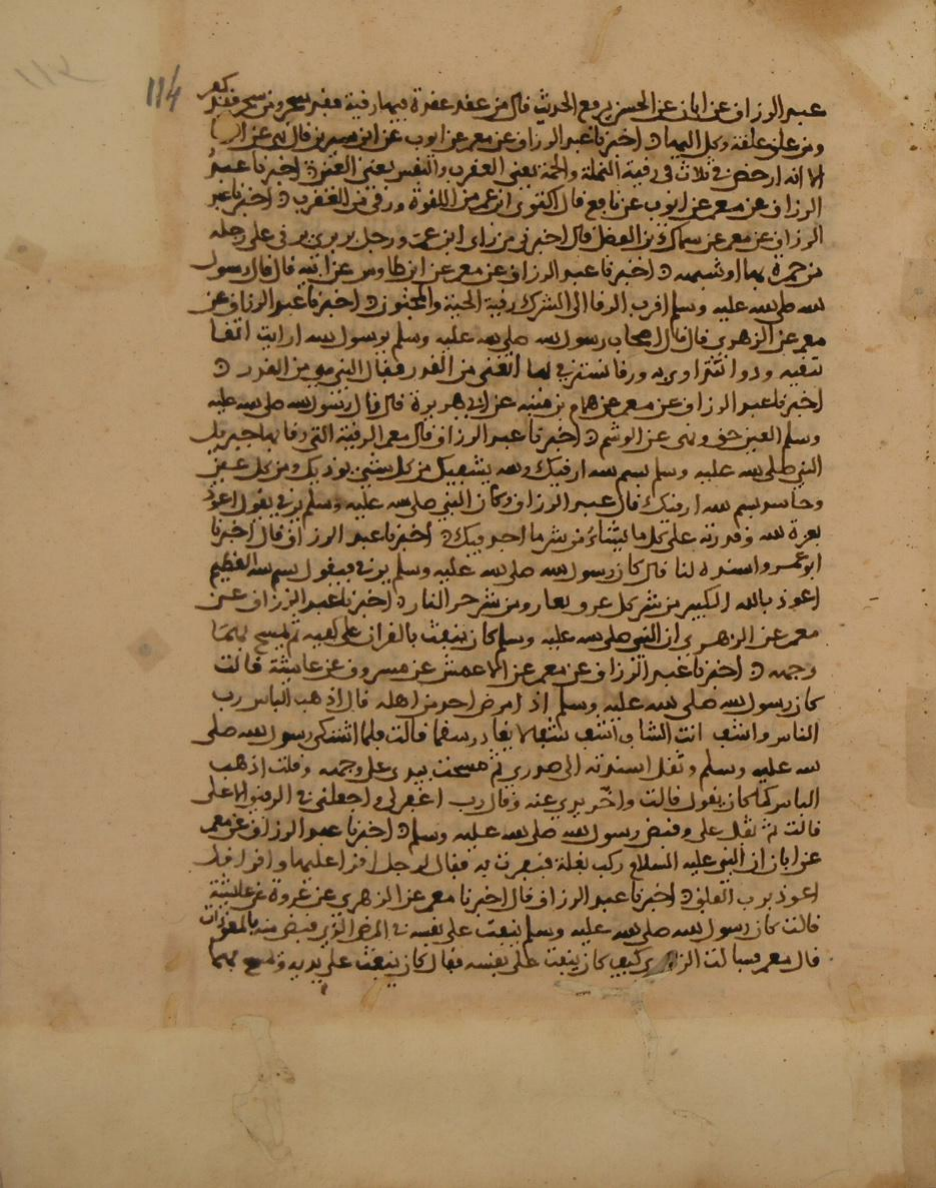 114
عبد الرزاق عن ابان عن الحسن يرفع الحديث قال من عقد عقدة فيها رقية فقد سحر ومن سحر فقد كفر
ومن علق علقة وكل اليها ۞ اخبرنا عبد الرزاق عن معمر عن ايوب عن ابن سيرين قال نهي عن الرقا
الا انه ارخص في ثلاث في رقية النملة والحمة يعني العقرب والنفس يعني العين ۞ اخبرنا عبد
الرزاق عن معمر عن ايوب عن نافع قال اكتوى ابن عمر من اللقوة ورقي من العقرب ۞ اخبرنا عبد
الرزاق عن معمر عن سماك بن الفضل قال اخبرني من راى ابن عمر ورجل بربري يرقي على رجله
من حمرة بها او شبهه ۞ اخبرنا عبد الرزاق عن معمر عن ابن طاوس عن ابيه قال قال رسول
الله صلى الله عليه وسلم اقرب الرقا الى الشرك رقية الحية والمجنون ۞ اخبرنا عبد الرزاق عن
معمر عن الزهري قال قال اصحاب رسول الله صلى الله عليه وسلم يرسول الله ارايت اتقا
نتقيه ودوا نتداوى به ورقا نسترقي بها اتغني من القدر فقال النبي هو من القدر ۞
اخبرنا عبد الرزاق عن معمر عن همام بن منبه عن ابي هريرة قال قال رسول الله صلى الله عليه
وسلم العين حق ونهى عن الوشم ۞ اخبرنا عبد الرزاق قال معمر الرقية التي رقا بها جبريل
النبي صلى الله عليه وسلم بسم الله ارقيك والله يشفيك من كل شيء يوذيك ومن كل عين
وحاسد بسم الله ارقيك قال عبد الرزاق وكان النبي صلى الله عليه وسلم يرقي يقول اعوذ
بعزة الله وقدرته على كل ما يشاء من شر ما اجد فيك ۞ اخبرنا عبد الرزاق قال اخبرنا
ابو عمر واسنده لنا قال كان رسول الله صلى الله عليه وسلم يرقي فيقول بسم الله العظيم
اعوذ بالله الكبير من شر كل عرق نعار ومن شر حر النار ۞ اخبرنا عبد الرزاق عن
معمر عن الزهري ان النبي صلى الله عليه وسلم كان ينفث بالقران على كفيه ثم يمسح بهما
وجهه ۞ اخبرنا عبد الرزاق عن معمر عن الاعمش عن مسروق عن عايشة قالت
كان رسول الله صلى الله عليه وسلم اذا مرض احد من اهله قال اذهب الباس رب
الناس واشف انت الشافي اشف شفا لا يغادر سقما قالت فلما اشتكى رسول الله صلى
الله عليه وسلم وثقل اسندته الى صدري ثم مسحت بيدي على وجهه وقلت اذهب
الباس كما كان يقول قالت واخر يدي عنه وقال رب اغفر لي واجعلني في الرفيق الاعلى
قالت ثم ثقل علي وقبض رسول الله صلى الله عليه وسلم ۞ اخبرنا عبد الرزاق عن معمر
عن ابان ان النبي عليه السلام ركب بغلة فنفرت به فقال لرجل اقرا عليها واقرا قل
اعوذ برب الفلق ۞ اخبرنا عبد الرزاق قال اخبرنا معمر عن الزهري عن عروة عن عايشة
قالت كان رسول الله صلى الله عليه وسلم ينفث على نفسه في المرض الذي قبض منه بالمعوذات
قال معمر فسالت الزهري كيف كان ينفث على نفسه فقال كان ينفث على يديه ويمسح بهما